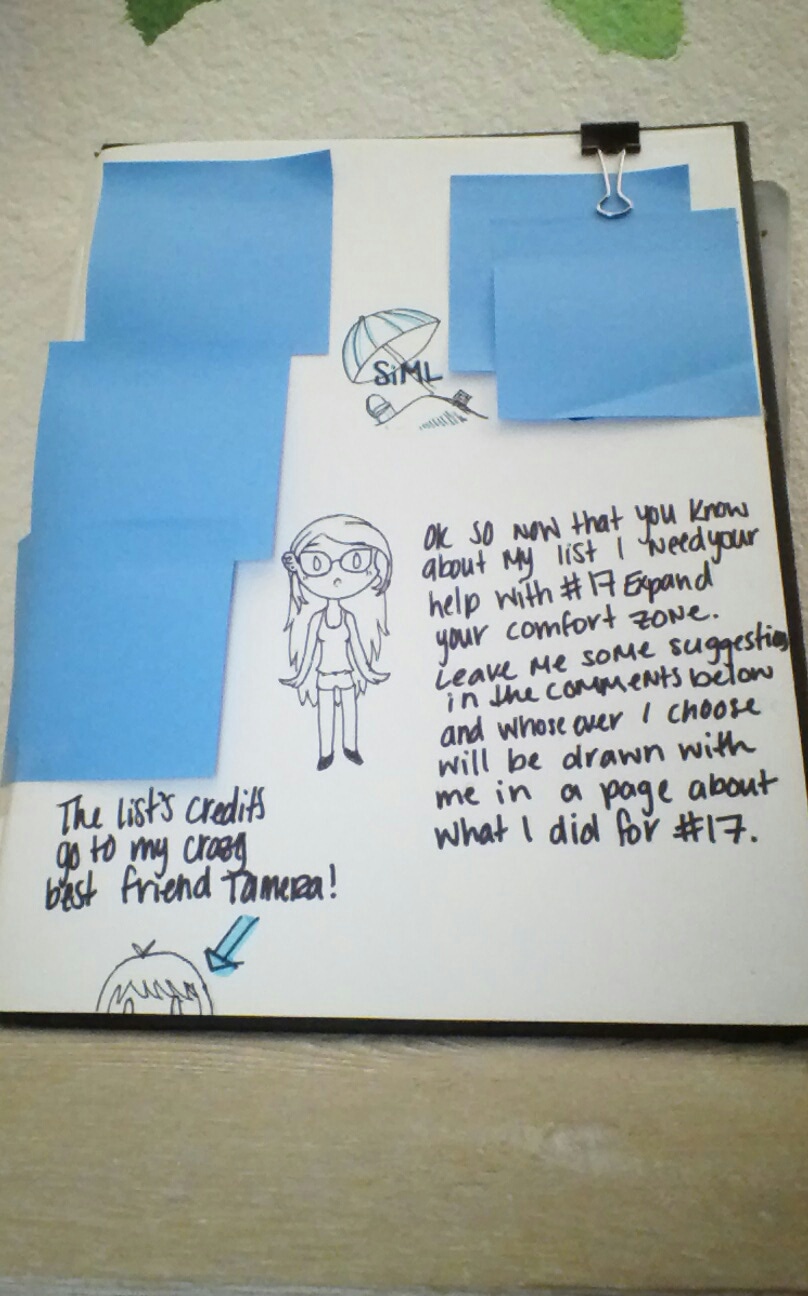 SiML
Ok so now that you know
about my list I need your
help with #17 Expand
your comfort zone.
Leave me some suggestions
in the comments below
and whose over I choose
will be drawn with
me in a page about
what I did for #17.
The list's credits
go to my crazy
best friend Tameza!